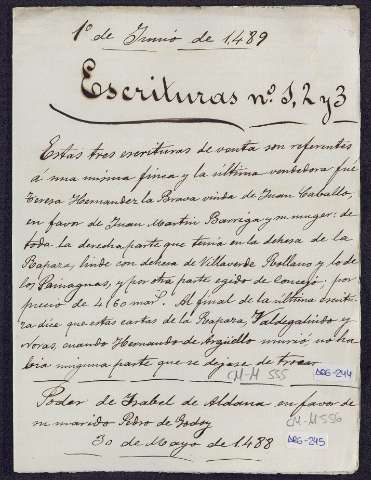 1º de Junio de 1489
Escrituras nos. 1, 2 y 3
Estas tres escrituras de venta son referentes
á una misma finca y la última vendedora fué
Teresa Hernandez la Brava viuda de Juan Caballo,
en favor de Juan Martin Barriga y su muger: de
toda la derecha parte que tenia en la dehesa de la
Rapaza, linde con dehesa de Villaverde Rollano y lo de
los Paniaguas, y por otra parte egido de Concejo: por
precio de 4160 mars. Al final de la última escritu-
ra dice que estas cartas de la Rapaza, Valdegalindo y
Noras, cuando Hernando de Argüello murió, no ha-
bia ninguna parte que se dejase de trocar
CM-M 555
ARG-244
Poder de Isabel de Aldana en favor de
su marido Pedro de Godoy
CM-M 556
30 de Mayo de 1488
ARG-245